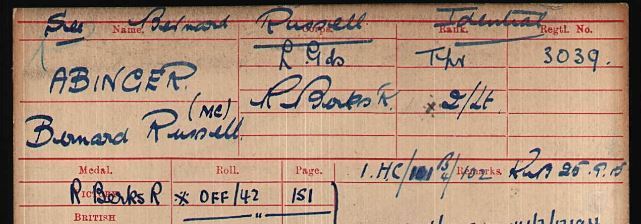 See Bernard Russell Identical
Name. Corps. Rank. Regtl. No.
ABINGER. L. Gds Tpr 3039.
(MC) R Berks R. * 2/Lt.
Bernard Russell.
Medal. Roll. Page. Remarks.
1. HC/101 B/4/102 25.9.15
VICTORY R Berks R * OFF/42 151
BRITISH "